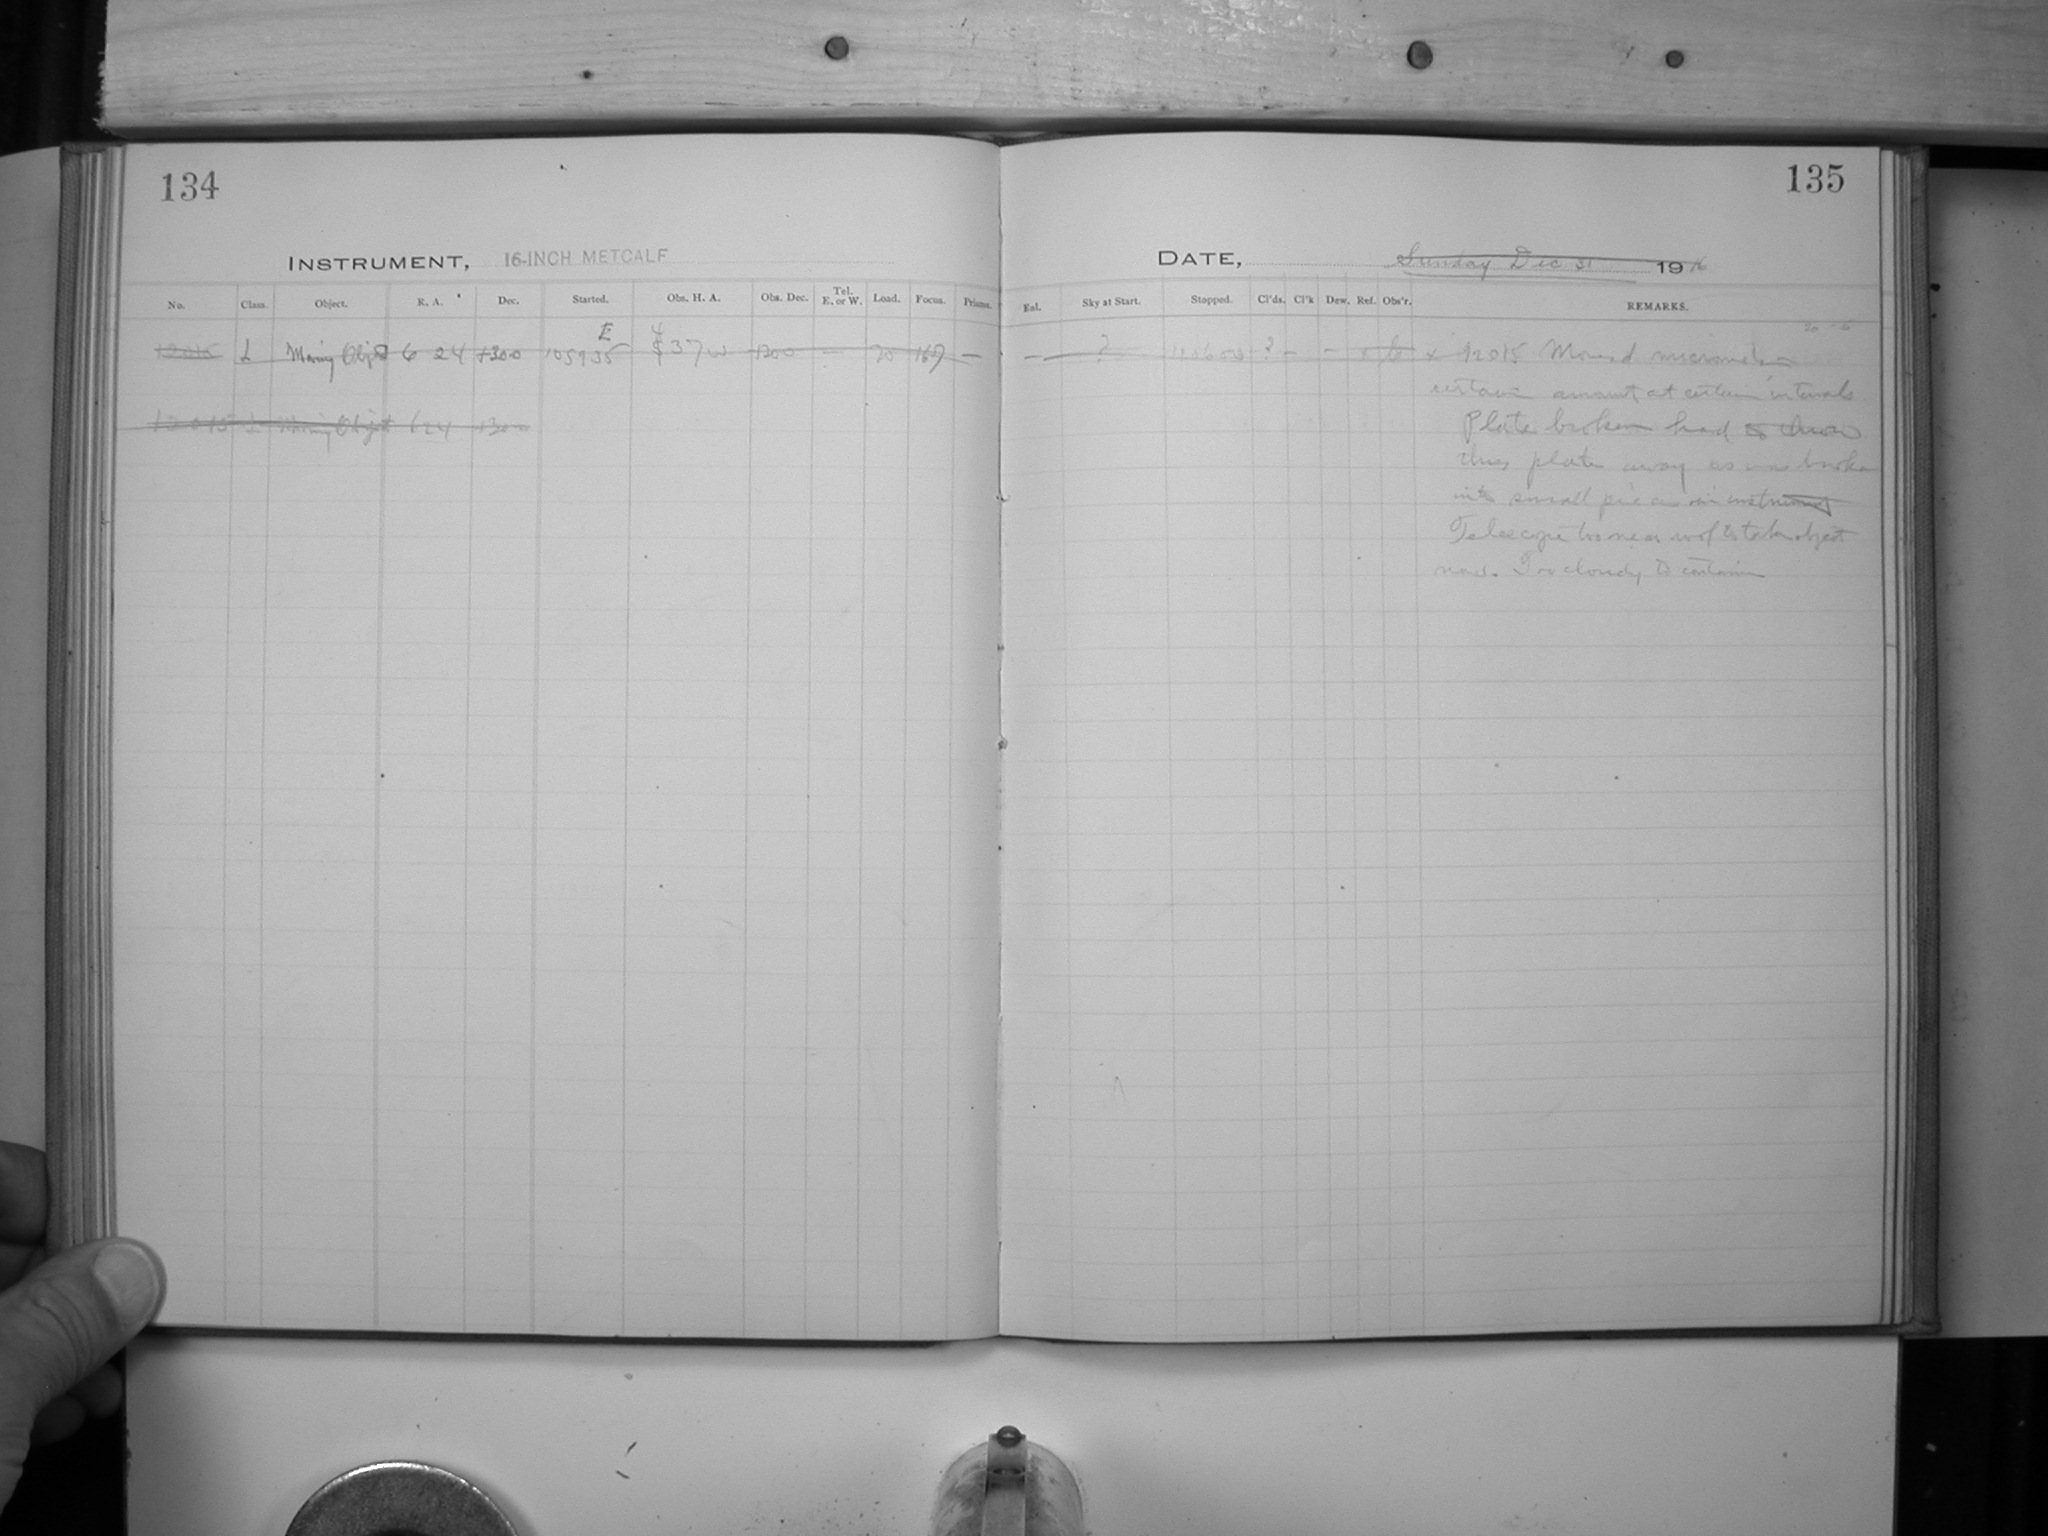 134
135
INSTRUMENT, 16-INCH METCALF
DATE, Sunday Dec 31 1916
No. Class. Object. R. A. Dec. Started. Obs. H. A. Obs. Dec. Tel. E. or W. Load. Focus. Prisms.
Enl. Sky at Start. Stopped. Cl'ds. Cl'k Dew. Ref. Obs'r. REMARKS.
E
12015 L Moving Object 6 24 +300 105935 37 W — 20 —
— ? ? — — x x 12015 Moved micrometer
certain amount at certain intervals
12015 L Moving Object 6 24 +300
Plate broken had to throw
this plate away as was broken
into small pieces in instrument
Telescope too near roof to take object
now. Too cloudy to continue